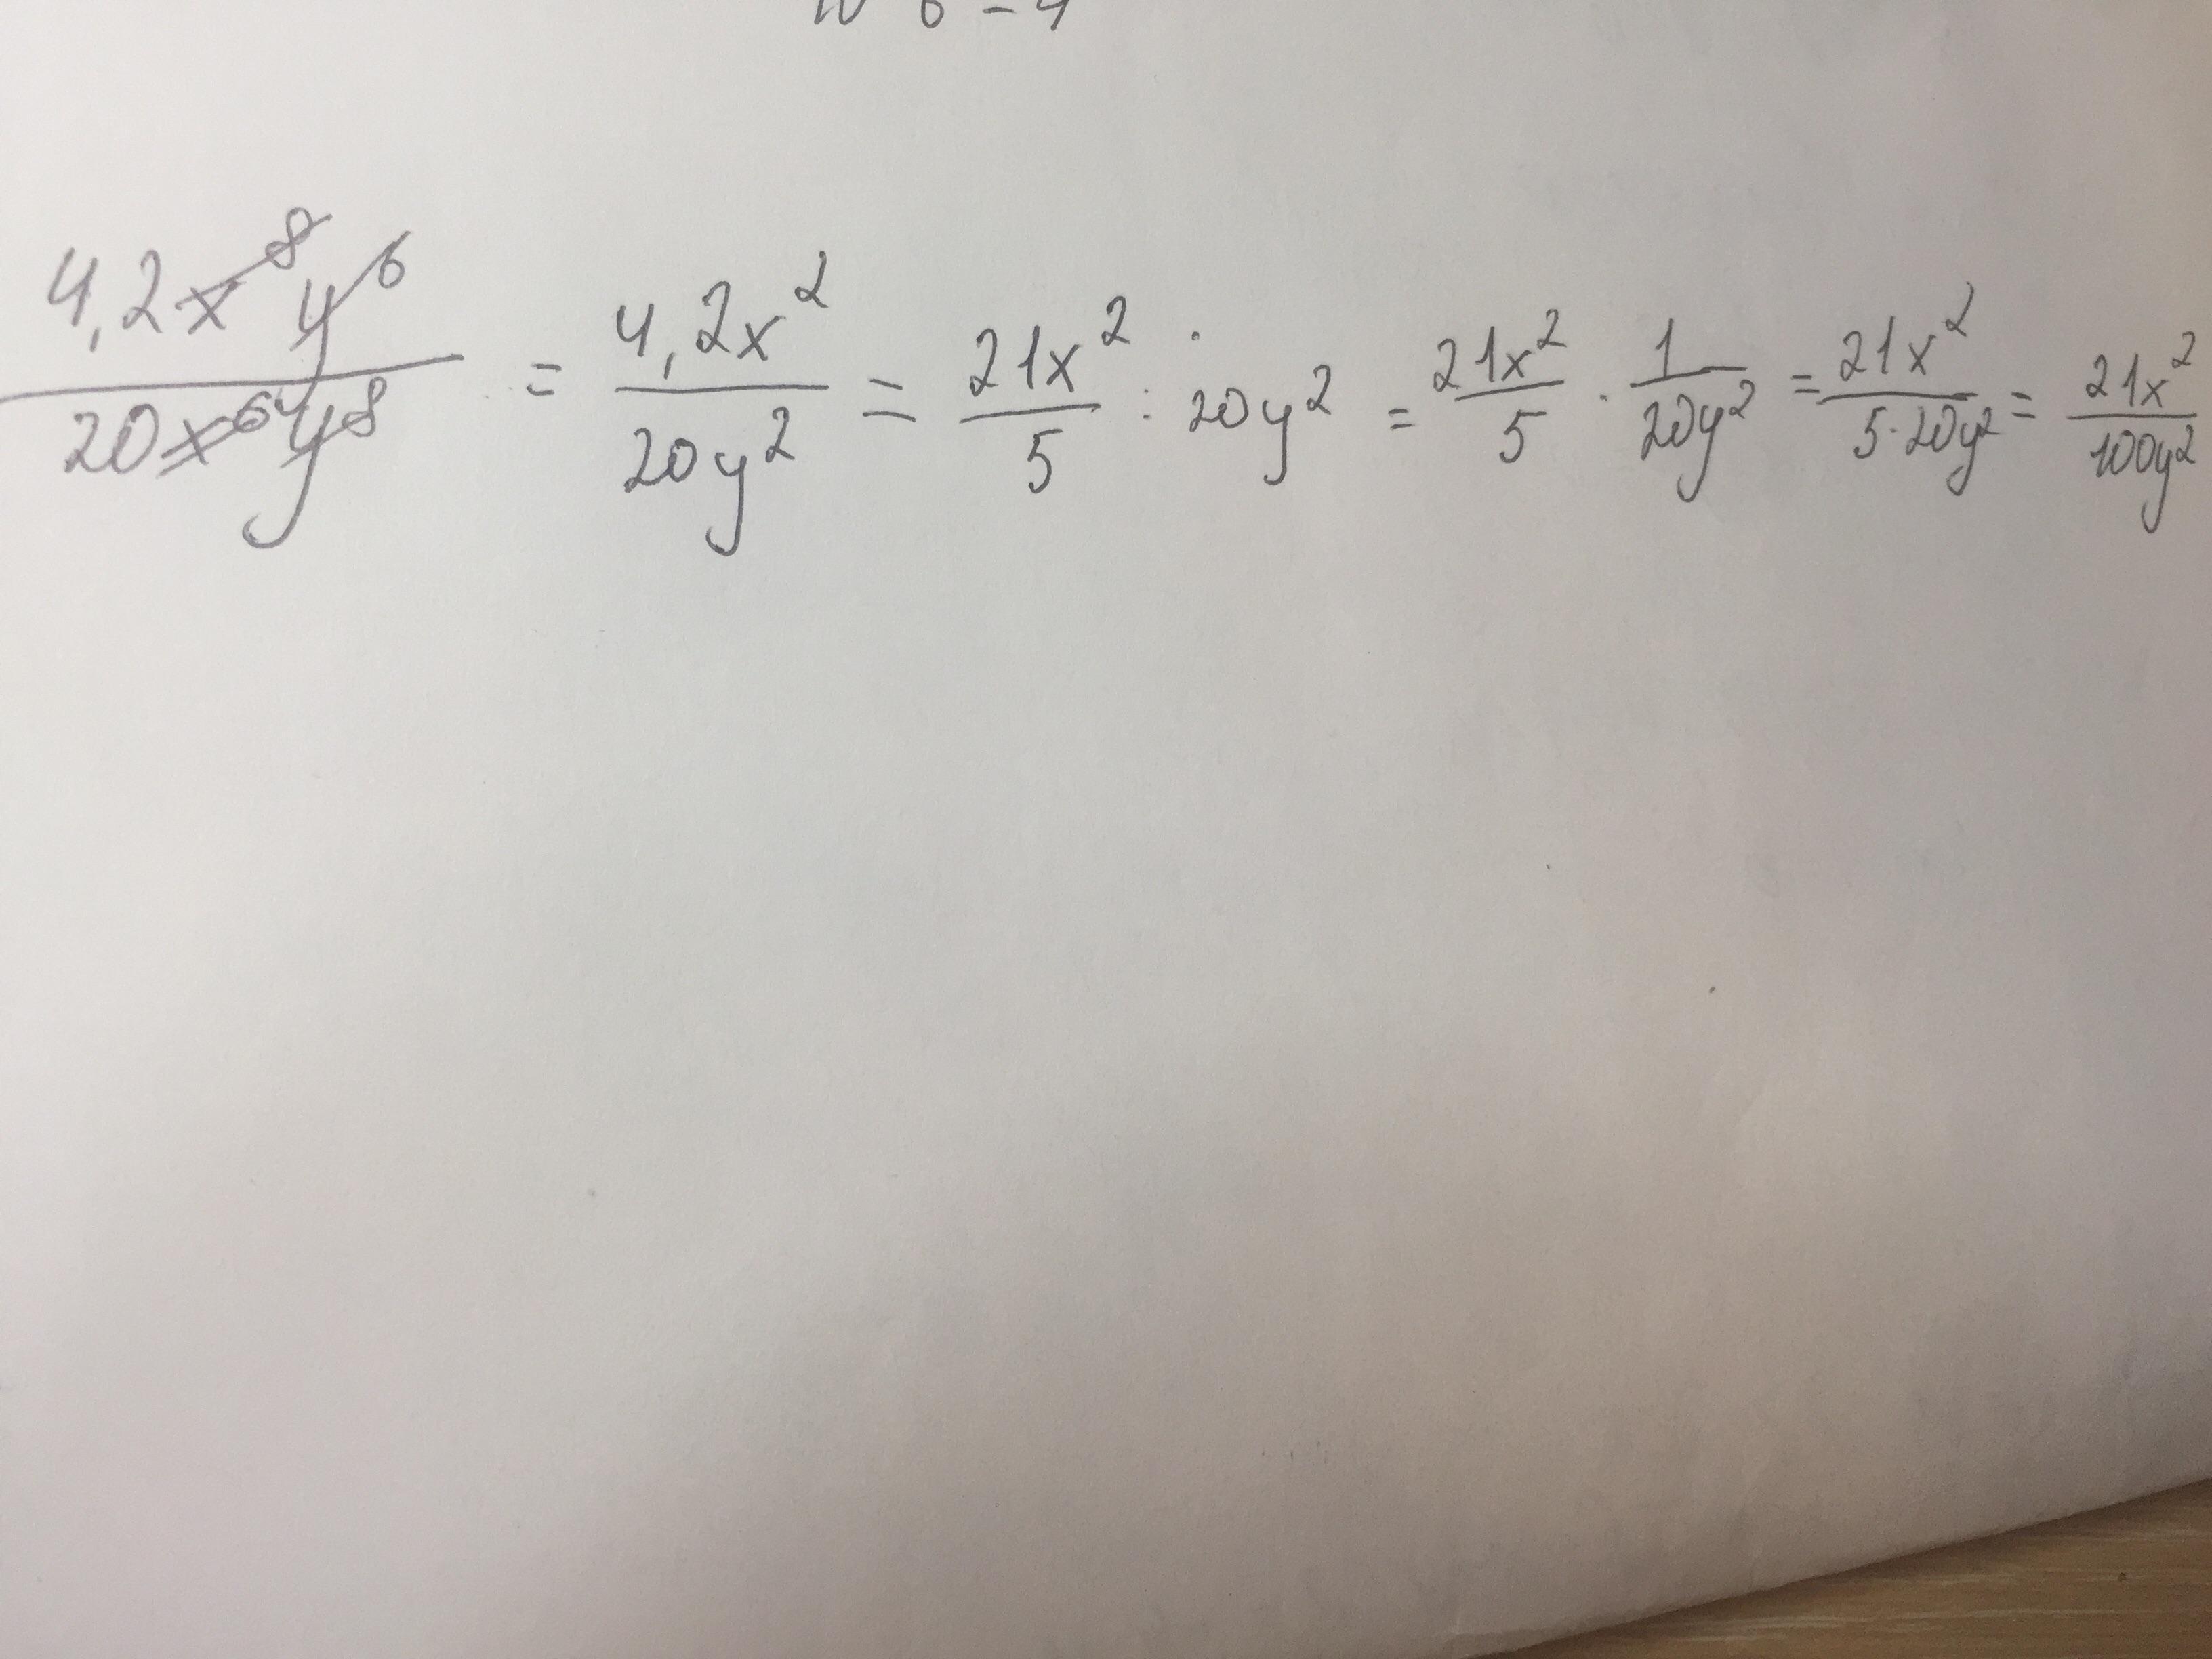 4,2x⁸y⁶/20x⁶y⁸ = 4,2x²/20y² = 21x²/5 : 20y² = 21x²/5 · 1/20y² = 21x²/5·20y² = 21x²/100y²